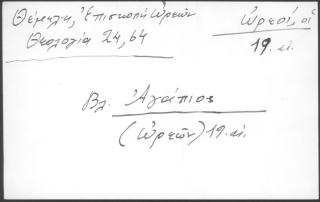 Θέμελη, Ἐπισκοπή Ὠρεῶν
Θεολογία 24, 64
Ὠρεοί, οἱ
19. αἰ.
Βλ. Ἀγάπιος
(Ὠρεῶν) 19. αἰ.